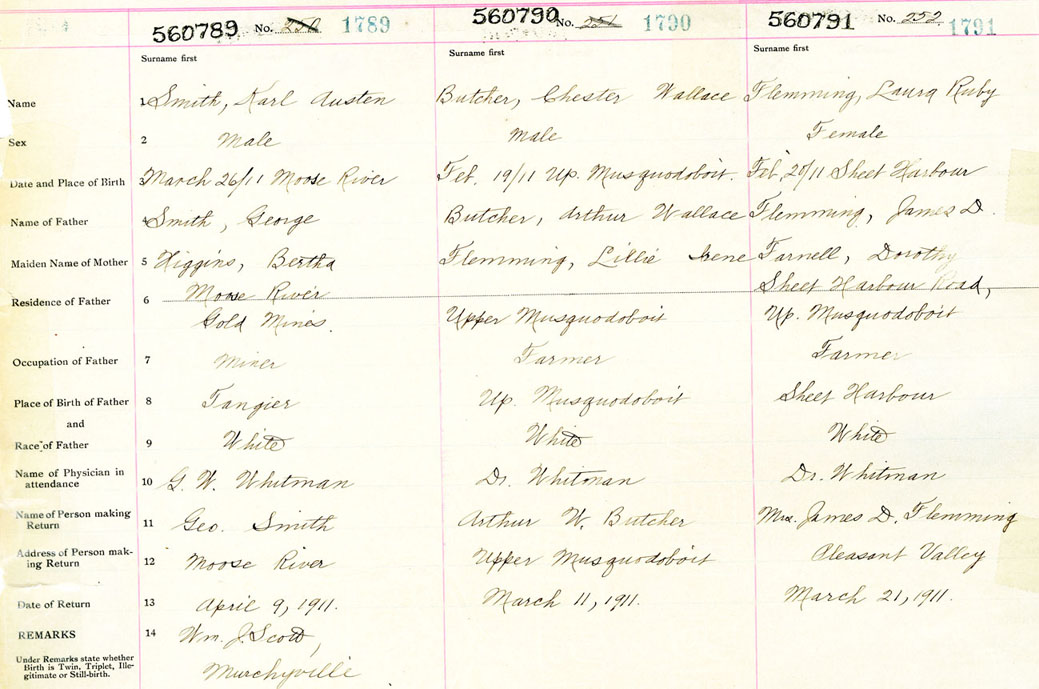 560789 No. 250 1789 560790 No. 251 1790 560791 No. 252 1791
Surname first Surname first Surname first
Name 1 Smith, Karl Austen Butcher, Chester Wallace Flemming, Laura Ruby
Sex 2 Male Male Female
Date and Place of Birth 3 March 26/11 Moose River Feb. 19/11 Up. Musquodoboit. Feb, 27/11 Sheet Harbour
Name of Father 4 Smith, George Butcher, Arthur Wallace Flemming, James D.
Maiden Name of Mother 5 Higgins, Bertha Flemming, Lillie Irene Farnell, Dorothy
Residence of Father 6 Moose River Sheet Harbour Road,
Gold Mines. Upper Musquodoboit Up. Musquodoboit
Occupation of Father 7 Miner Farmer Farmer
Place of Birth of Father 8 Tangier Up. Musquodoboit Sheet Harbour
and
Race of Father 9 White White White
Name of Physician in
attendance 10 G. W. Whitman Dr. Whitman Dr. Whitman
Name of Person making
Return 11 Geo. Smith Arthur W. Butcher Mrs. James D. Flemming
Address of Person mak-
ing Return 12 Moose River Upper Musquodoboit Pleasant Valley
Date of Return 13 April 9, 1911. March 11, 1911. March 21, 1911.
REMARKS 14 Wm. J. Scott,
Under Remarks state whether
Birth is Twin, Triplet, Ille-
gitimate or Still-birth.
Murchyville